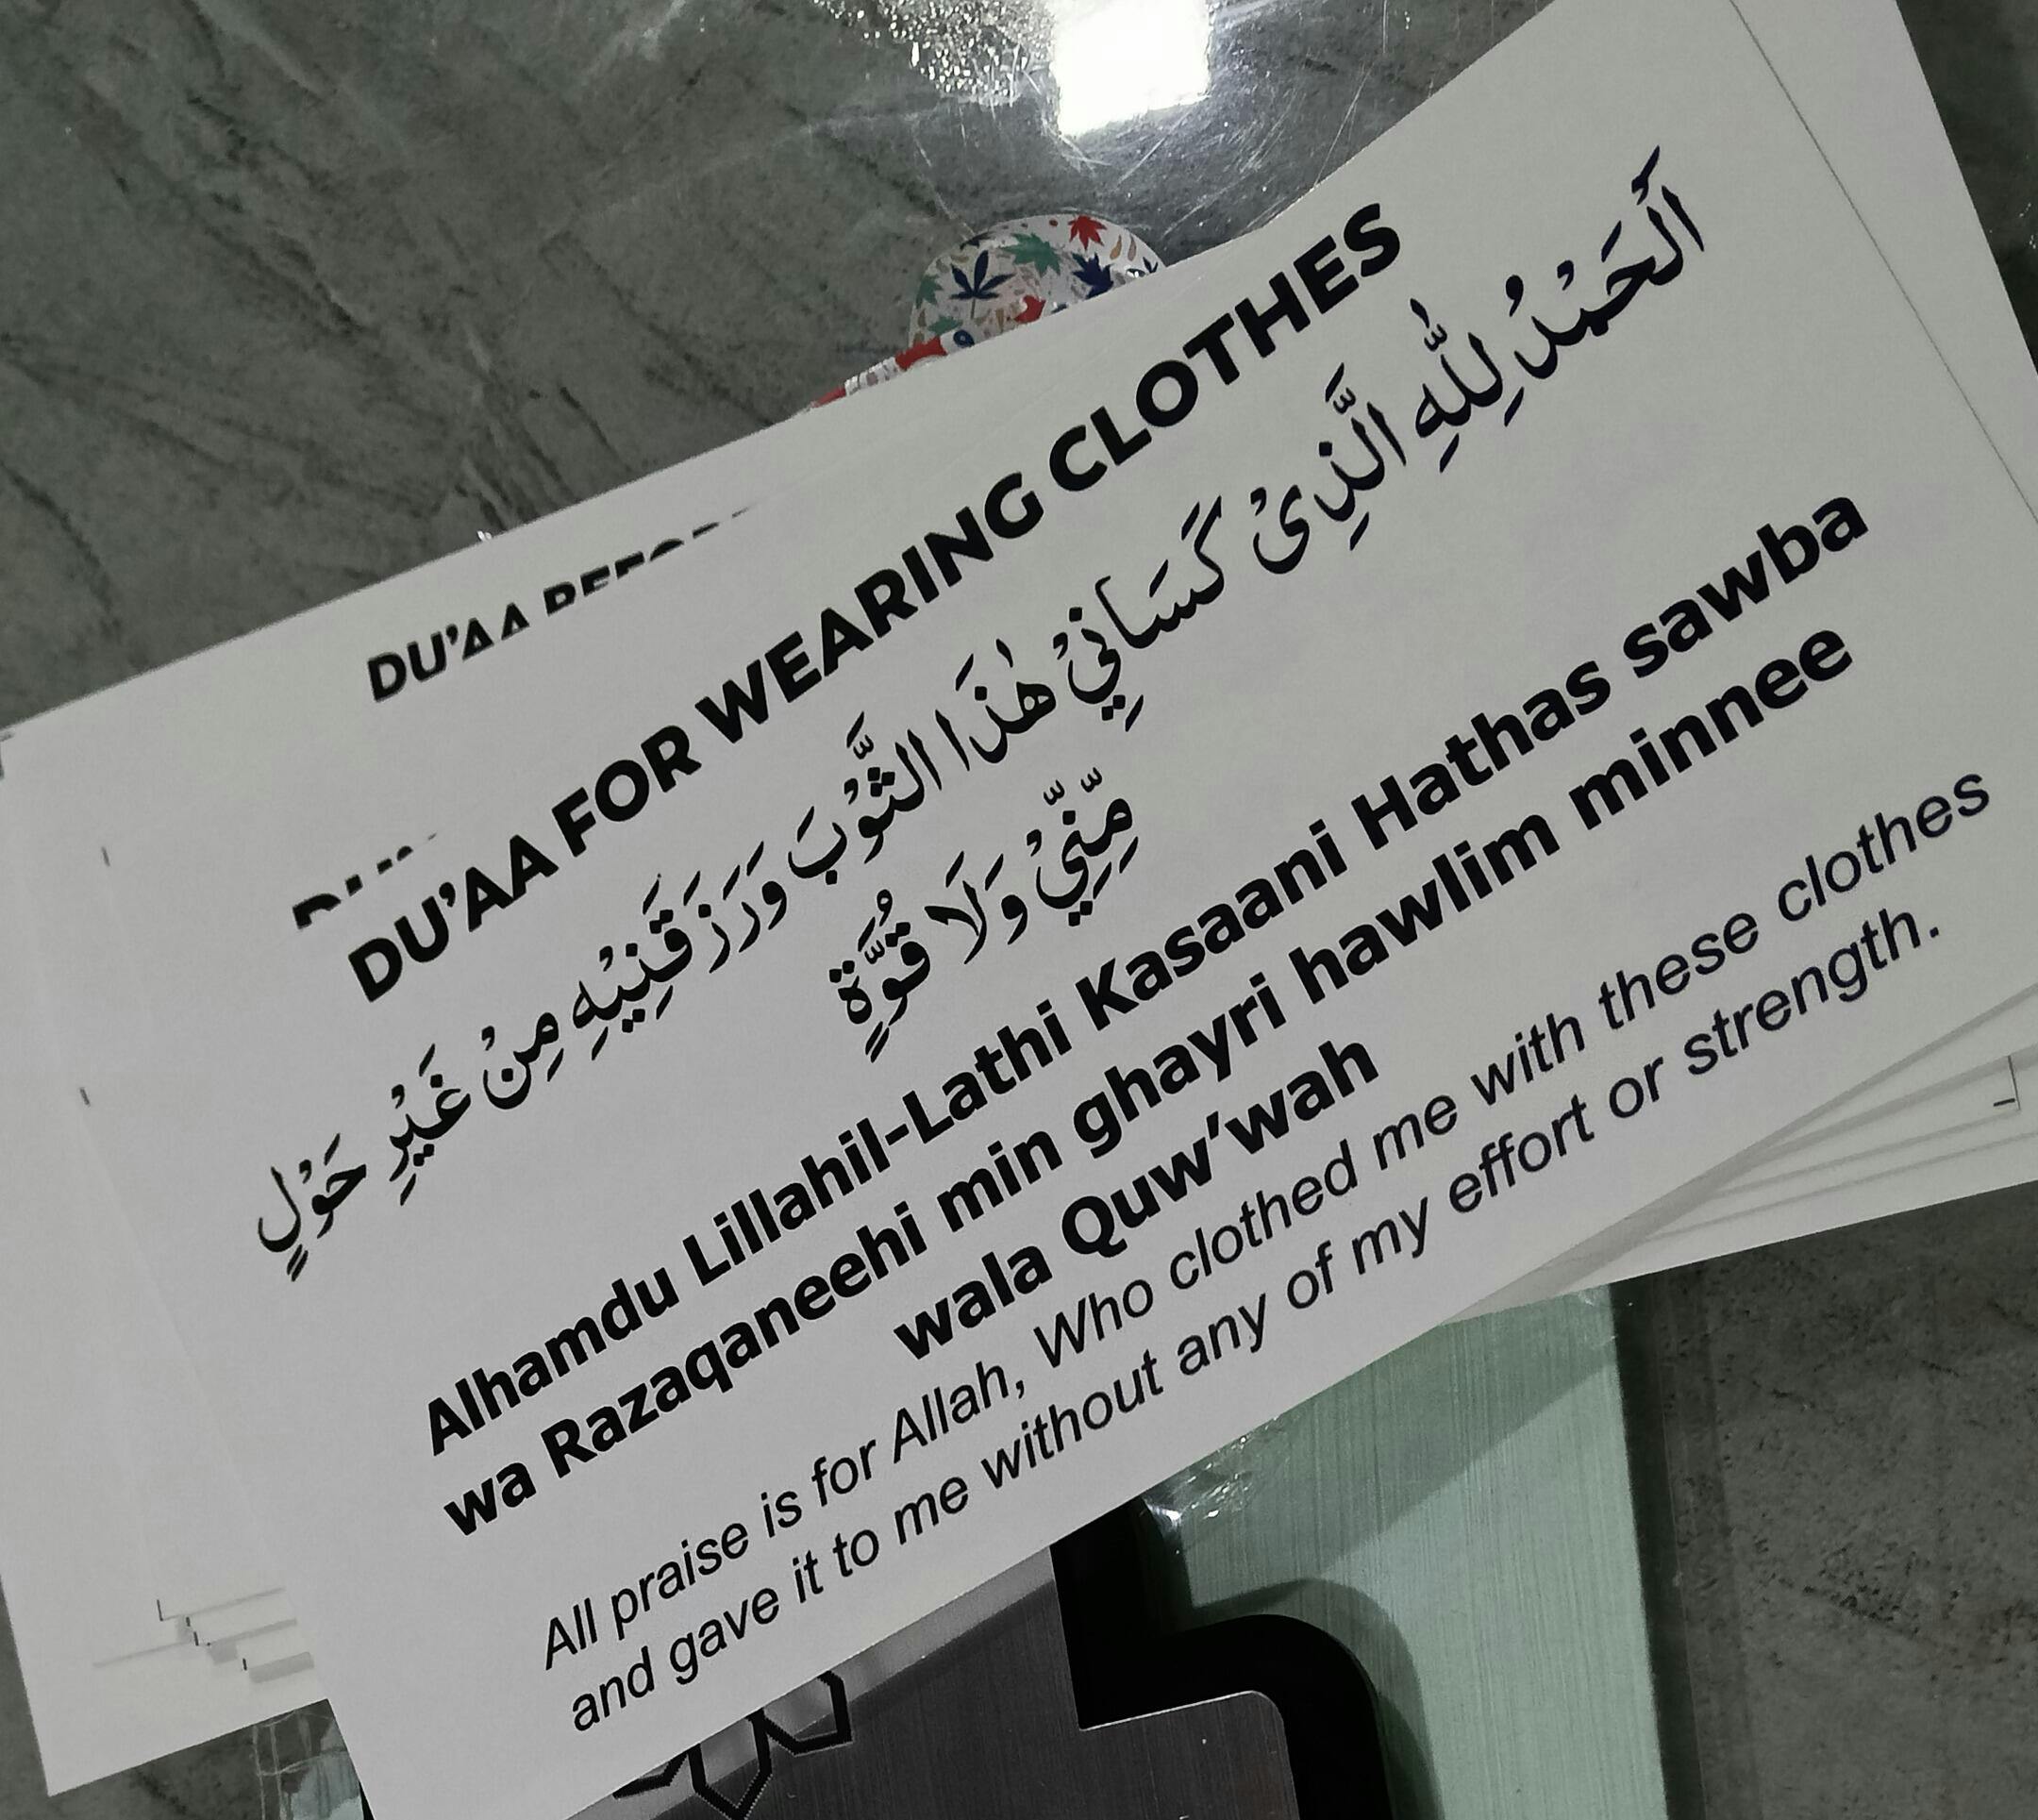 DU'AA
DU'AA FOR WEARING CLOTHES
اَلْحَمْدُ لِلّٰهِ الَّذِىْ كَسَانِيْ
هٰذَا الثَّوْبَ وَرَزَقَنِيْهِ مِنْ غَيْرِ حَوْلٍ
مِّنِّيْ وَلَا قُوَّةٍ
Alhamdu Lillahil-Lathi Kasaani Hathas sawba
wa Razaqaneehi min ghayri hawlim minnee
wala Quw'wah
All praise is for Allah, Who clothed me with these clothes
and gave it to me without any of my effort or strength.